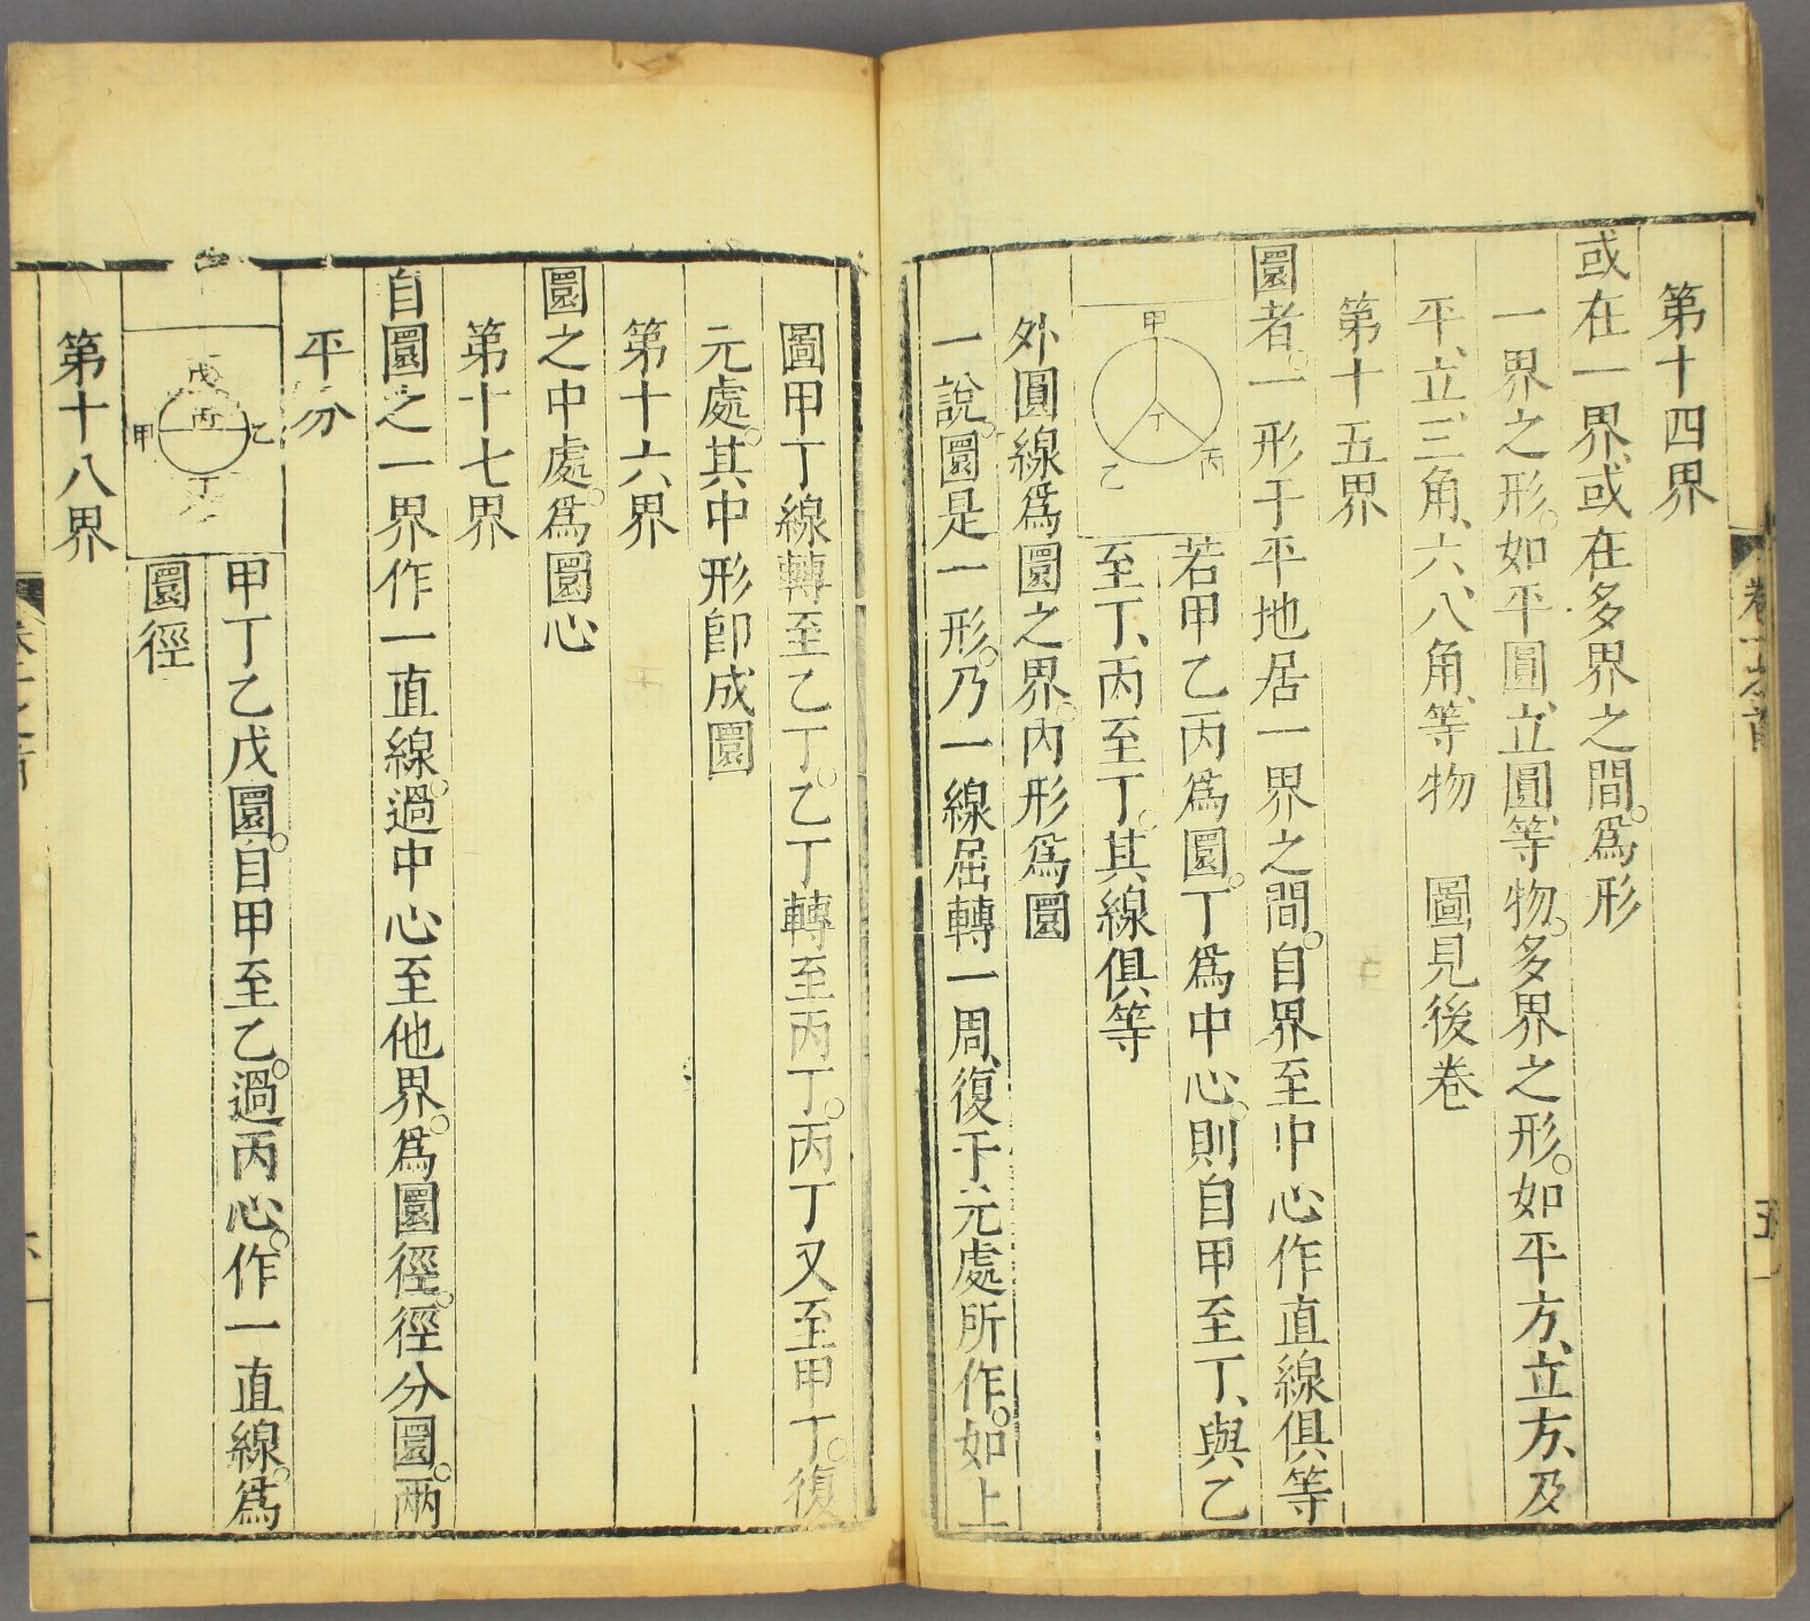 第十四界
或在一界、或在多界之間。爲形
一界之形。如平圓、立圓、等物。多界之形。如平方、立方、及
平、立、三角、六、八角、等物　圖見後卷
第十五界
圜者。一形于平地居一界之間。自界至中心作直線俱等
甲
丁
乙
丙
若甲乙丙爲圜。丁爲中心。則自甲至丁、與乙
至丁、丙至丁。其線俱等
外圓線爲圜之界。內形爲圜
一說。圜是一形。乃一線屈轉一周、復于元處所作。如上
五
圖甲丁線轉至乙丁。乙丁轉至丙丁。丙丁又至甲丁。復
元處。其中形卽成圜
第十六界
圜之中處。爲圜心
第十七界
自圜之一界作一直線。過中心至他界。爲圜徑。徑分圜。兩
平分
戊
丙
甲
乙
丁
甲丁乙戊圜。自甲至乙。過丙心。作一直線。爲
圜徑
第十八界